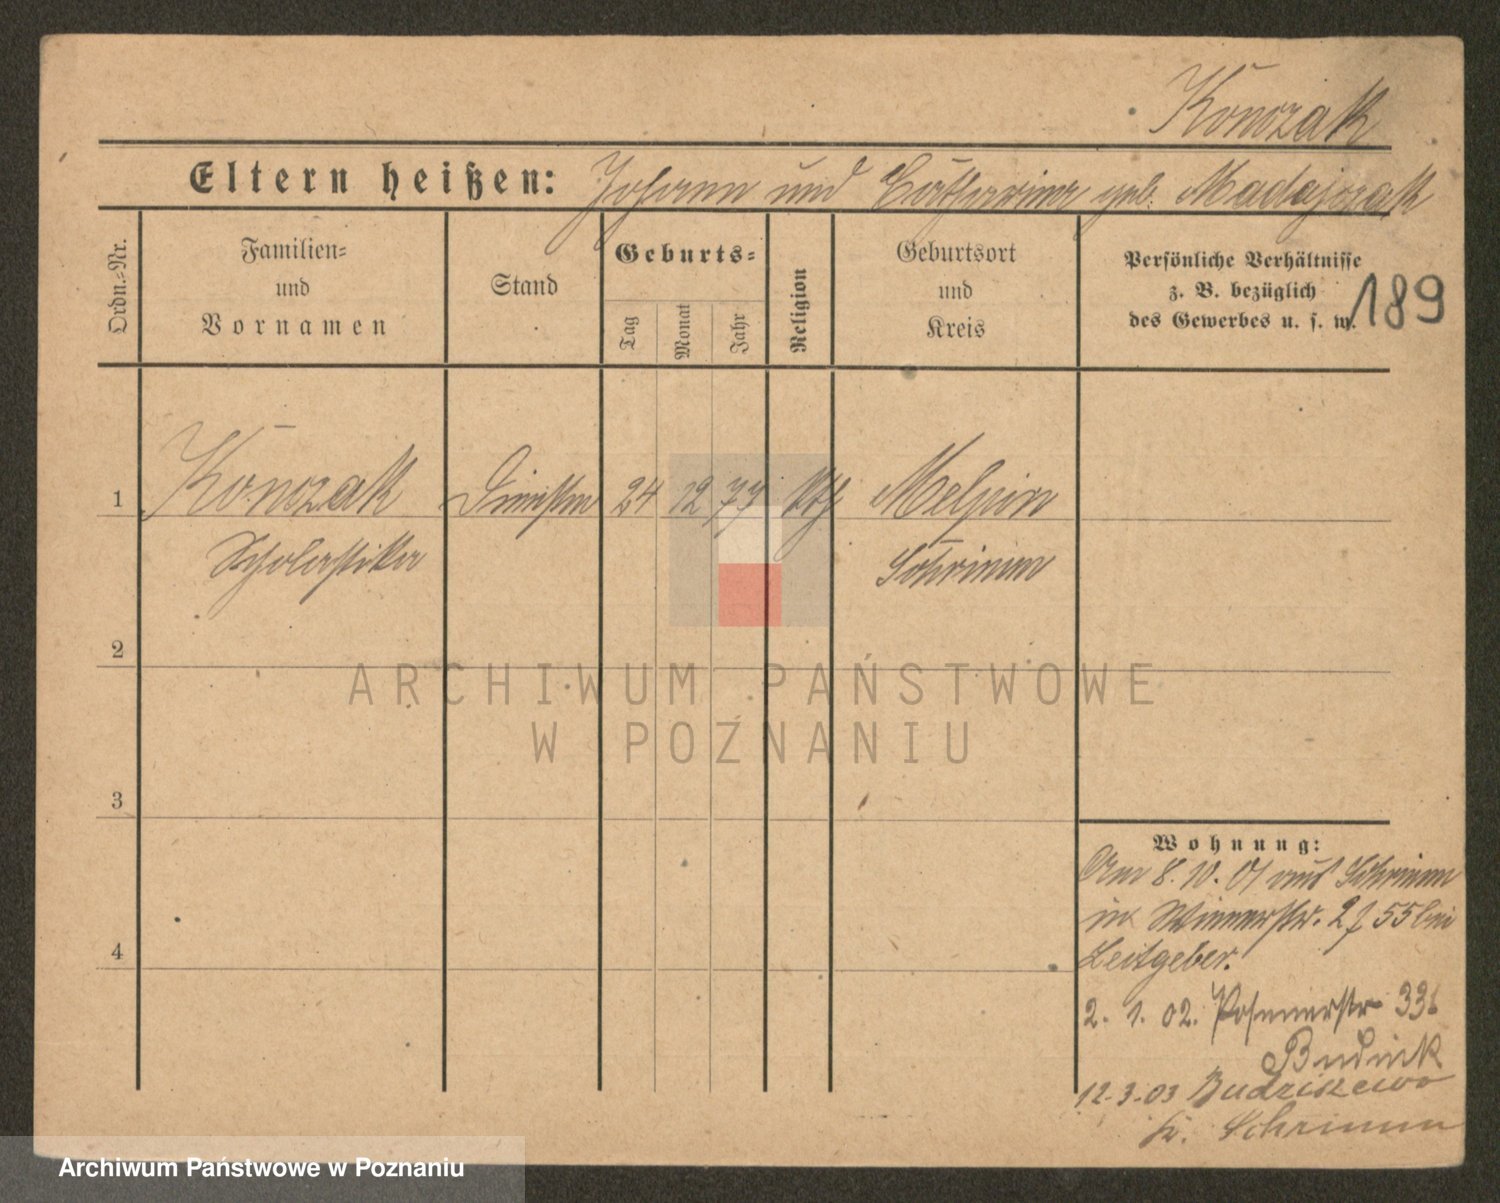 Konczak
Eltern heißen: Johann und Catharina geb. Madajczak
Ordn.=Nr.
Familien=
und
Vornamen
Stand
Geburts=
Tag
Monat
Jahr
Religion
Geburtsort
und
Kreis
Persönliche Verhältnisse
z. B. bezüglich
des Gewerbes u. s. w.
189
1 Konczak 24 12 77 kth Melpin
Scholastika Schrimm
2
3
4
ARCHIWUM PAŃSTWOWE
W POZNANIU
Wohnung:
Am 8. 10. 01 aus Schrimm
in Wienerstr. 55 bei
Leitgeber.
2. 1. 02. Posenerstr 33
12.3.03 Budziszewo
kr. Schrimm
Archiwum Państwowe w Poznaniu